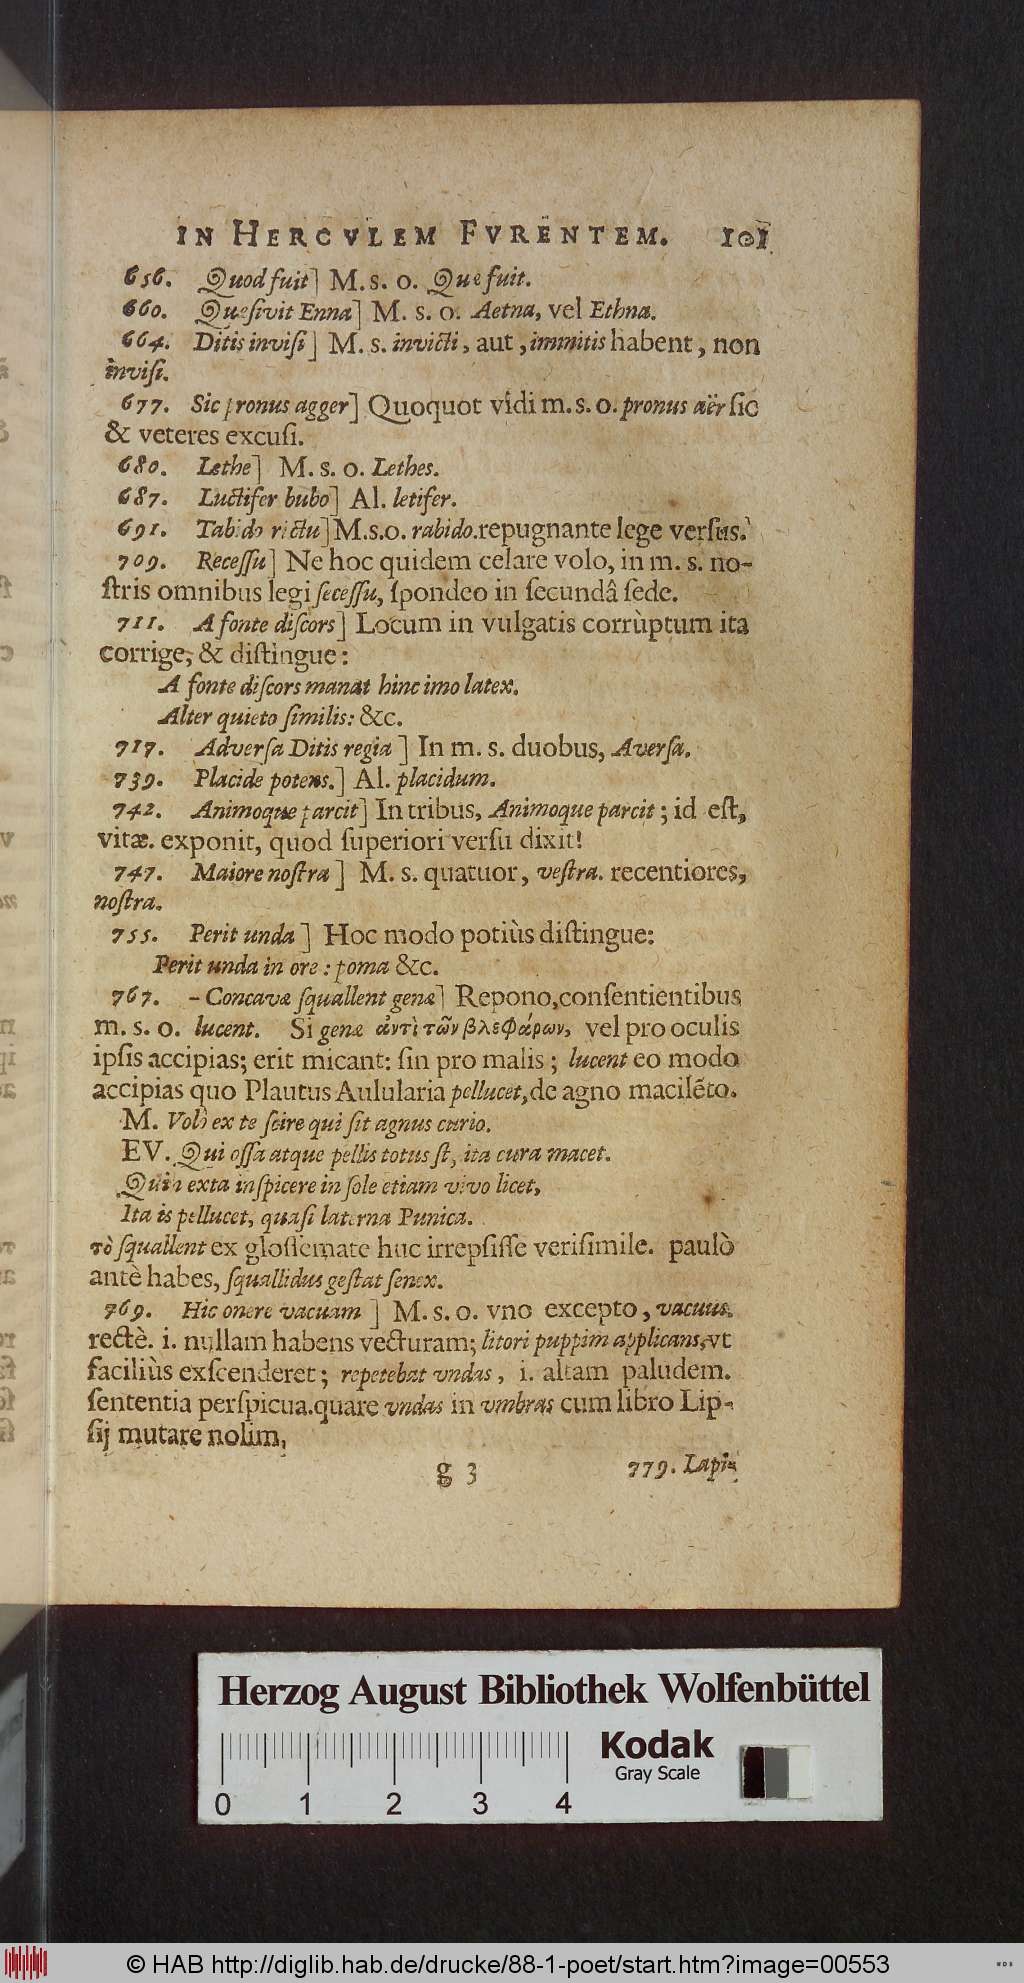 IN HERCVLEM FVRENTEM. 101
656. Quod fuit] M. s. o. Quæ fuit.
660. Quæsivit Enna] M. s. o. Aetna, vel Ethna.
664. Ditis invisi] M. s. invicti, aut, immitis habent, non
invisi.
677. Sic pronus agger] Quoquot vidi m. s. o. pronus aër sic
& veteres excusi.
680. Lethe] M. s. o. Lethes.
687. Luctifer bubo] Al. letifer.
691. Tabido rictu] M.s.o. rabido.repugnante lege versus.
709. Recessu] Ne hoc quidem celare volo, in m. s. no-
stris omnibus legi secessu, spondeo in secundâ sede.
711. A fonte discors] Locum in vulgatis corrùptum ita
corrige, & distingue:
A fonte discors manat hinc imo latex.
Alter quieto similis: &c.
717. Adversa Ditis regia] In m. s. duobus, Aversa.
739. Placide potens.] Al. placidum.
742. Animoque parcit] In tribus, Animoque parcit; id est,
vitæ. exponit, quod superiori versu dixit!
747. Maiore nostra] M. s. quatuor, vestra. recentiores,
nostra.
755. Perit unda] Hoc modo potiùs distingue:
Perit unda in ore: poma &c.
767. - Concavæ squallent genæ] Repono, consentientibus
m. s. o. lucent. Si genæ ἀντὶ τῶν βλεφάρων, vel pro oculis
ipsis accipias; erit micant: sin pro malis; lucent eo modo
accipias quo Plautus Aulularia pellucet, de agno macilẽto.
M. Volo ex te scire qui sit agnus curio.
EV. Qui ossa atque pellis totus st, ita cura macet.
Quin exta inspicere in sole etiam vivo licet,
Ita is pellucet, quasi laterna Punica.
τὸ squallent ex glossemate huc irrepsisse verisimile. paulò
antè habes, squallidus gestat senex.
769. Hic onere vacuam] M. s. o. vno excepto, vacuus.
rectè. i. nullam habens vecturam; litori puppim applicans, vt
faciliùs exscenderet; repetebat vndas, i. altam paludem.
sententia perspicua. quare vndas in vmbras cum libro Lip-
sij mutare nolim,
g 3 779. Lapi-
Herzog August Bibliothek Wolfenbüttel
Kodak
Gray Scale
0 1 2 3 4
© HAB http://diglib.hab.de/drucke/88-1-poet/start.htm?image=00553